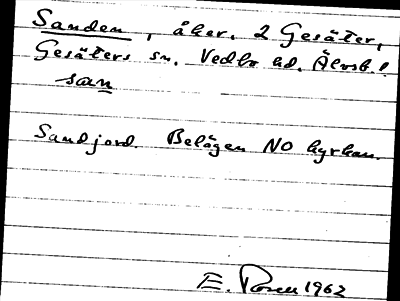 Sanden, åker. 2 Gesäter,
Gesäters sn. Vedbo hd. Älvsb. l
san
Sandjord. Belägen NO kyrkan.
E. Rosen 1962